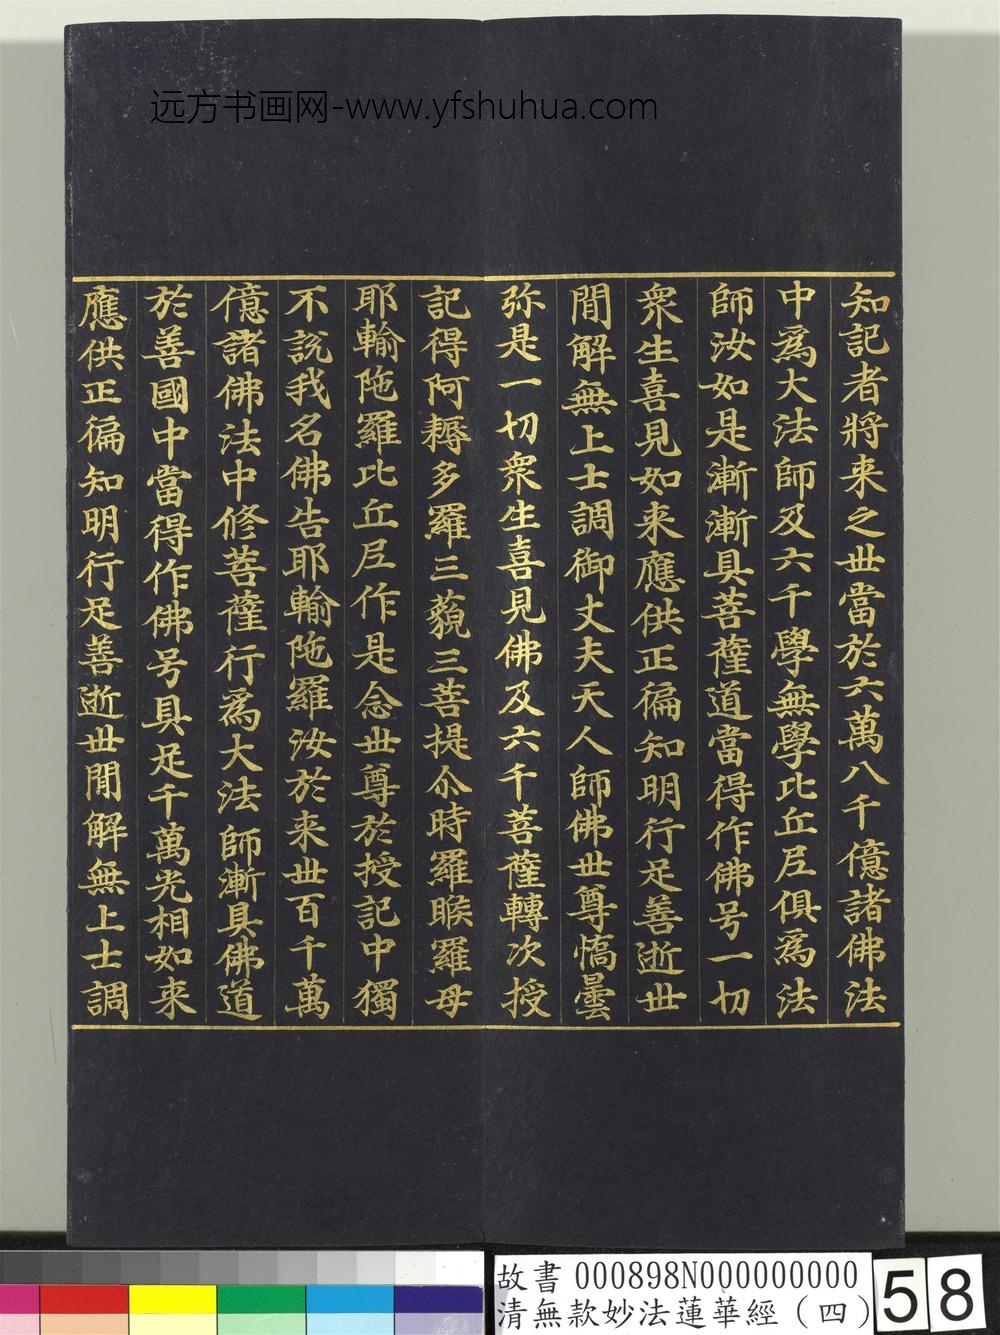 远方书画网-www.yfshuhua.com
知記者將来之丗當於六萬八千億諸佛法
中為大法師及六千學無學比丘𡰱俱為法
師汝如是漸漸具菩薩道當得作佛号一切
衆生喜見如来應供正徧知明行足善逝丗
閒解無上士調御丈夫天人師佛丗尊憍曇
弥是一切衆生喜見佛及六千菩薩轉次授
記得阿耨多羅三藐三菩提尒時羅睺羅母
耶輸陁羅比丘𡰱作是念丗尊於授記中獨
不說我名佛告耶輸陁羅汝於来丗百千萬
億諸佛法中修菩薩行為大法師漸具佛道
於善國中當得作佛号具足千萬光相如来
應供正徧知明行足善逝丗閒解無上士調
故書 000898N000000000
清無款妙法蓮華經（四）
58